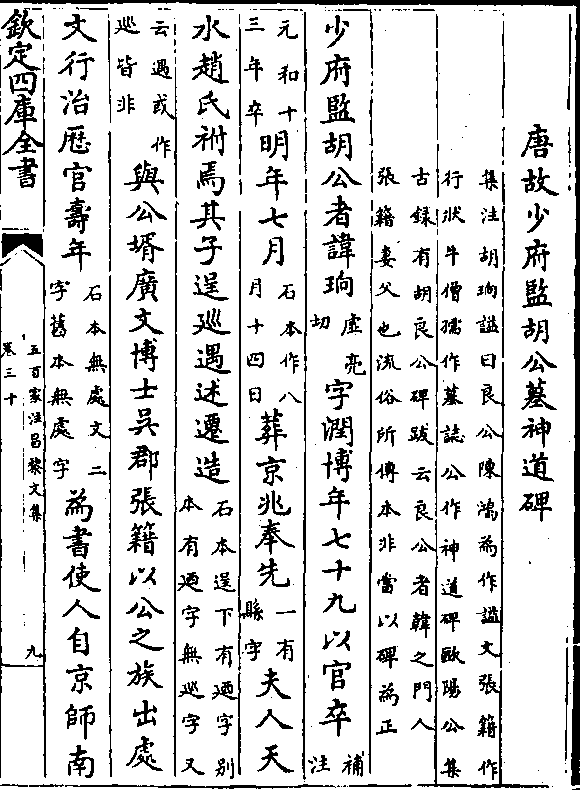 唐故少府監胡公墓神道碑
集注胡珦謚曰良公陳鴻為作謚文張籍作
行狀牛僧孺作墓誌公作神道碑歐陽公集
古錄有胡良公碑跋云良公者韓之門人
張籍妻父也流俗所傳本非當以碑為正
少府監胡公者諱珦虛亮切字潤博年七十九以官卒補注
元和十三年卒明年七月石本作八月十四日葬京兆奉先一有縣字夫人天
水趙氏祔焉其子逞廵遇述遷造石本逞下有迺字别本有迺字無廵字又
云遇或作廵皆非與公壻廣文博士吳郡張籍以公之族出處
文行治歷官壽年石本無處文二字舊本無處字為書使人自京師南
欽定四庫全書
五百家注昌黎文集
卷三十
九